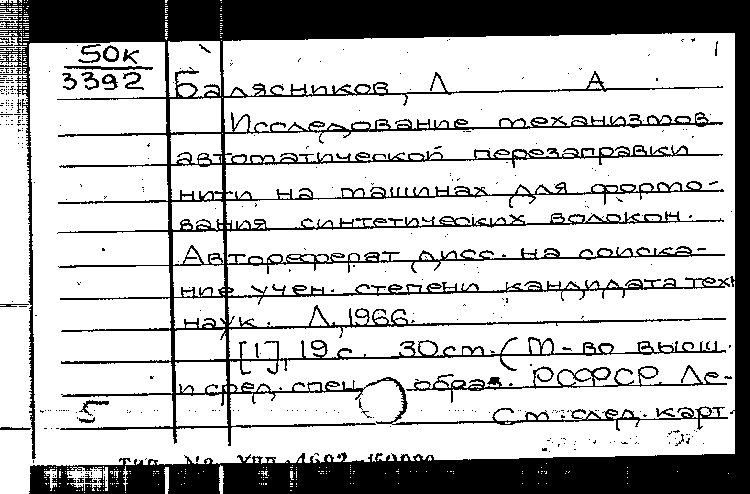 50к
3392
1
Балясников, Л А
Исследование механизмов
автоматической перезаправки
нити на машинах для формо-
вания синтетических волокон.
Автореферат дисс. на соиска-
ние учен. степени кандидата техн
наук. Л., 1966.
[1], 19 с. 30 см. (М-во высш.
и сред. спец. образ. РСФСР. Ле-
5
См. след. карт.